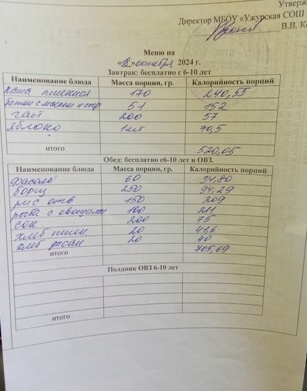 Утверж
Директор МБОУ «Ужурская СОШ
В.В. Ко
Меню на
октября 2024 г.
Завтрак: бесплатно с 6-10 лет
Наименование блюда Масса порции, гр. Калорийность порций
каша пшенная 170 240,55
батон с маслом и сыр 51 152
чай 200 57
яблоко 1шт 70,5
итого 520,05
Обед: бесплатно с6-10 лет и ОВЗ.
Наименование блюда Масса порции, гр. Калорийность порций
фасоль 60 34,80
борщ 250 94,29
рис отв 150 209
рыба с овощами 100 211
сок 200 75
хлеб пшен 20 41,6
хлеб ржан 20 40
итого 705,69
Полдник ОВЗ 6-10 лет
итого